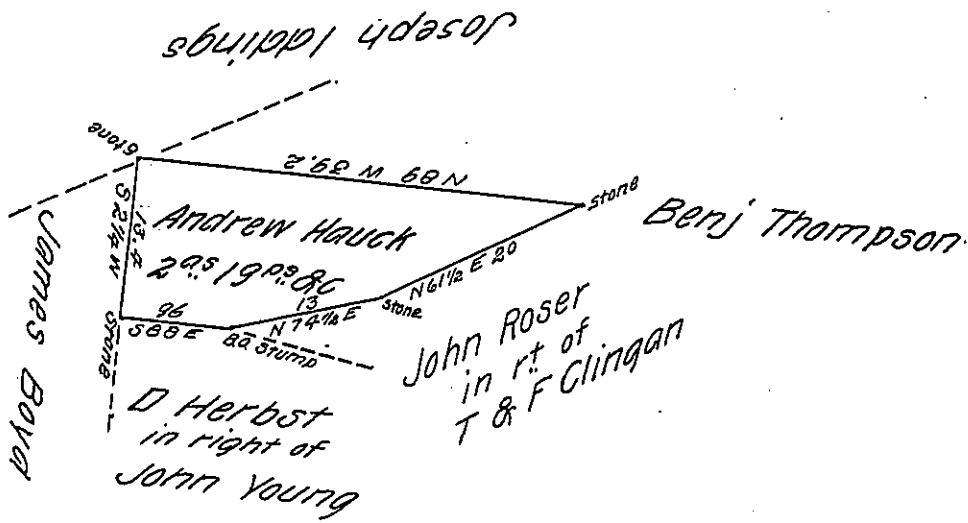 Joseph Iddings
Stone
N 89 W 39.2
stone
Benj Thompson
S 2 1/4 W
13.4
Andrew Hauck
2 as 19 ps &c
N 61 1/2 E 20
stone
13
N 74 1/2 E
96
S 88 E
BO Stump
Stone
James Boyd
John Roser
in rt of
T & F Clingan
D Herbst
in right of
John Young